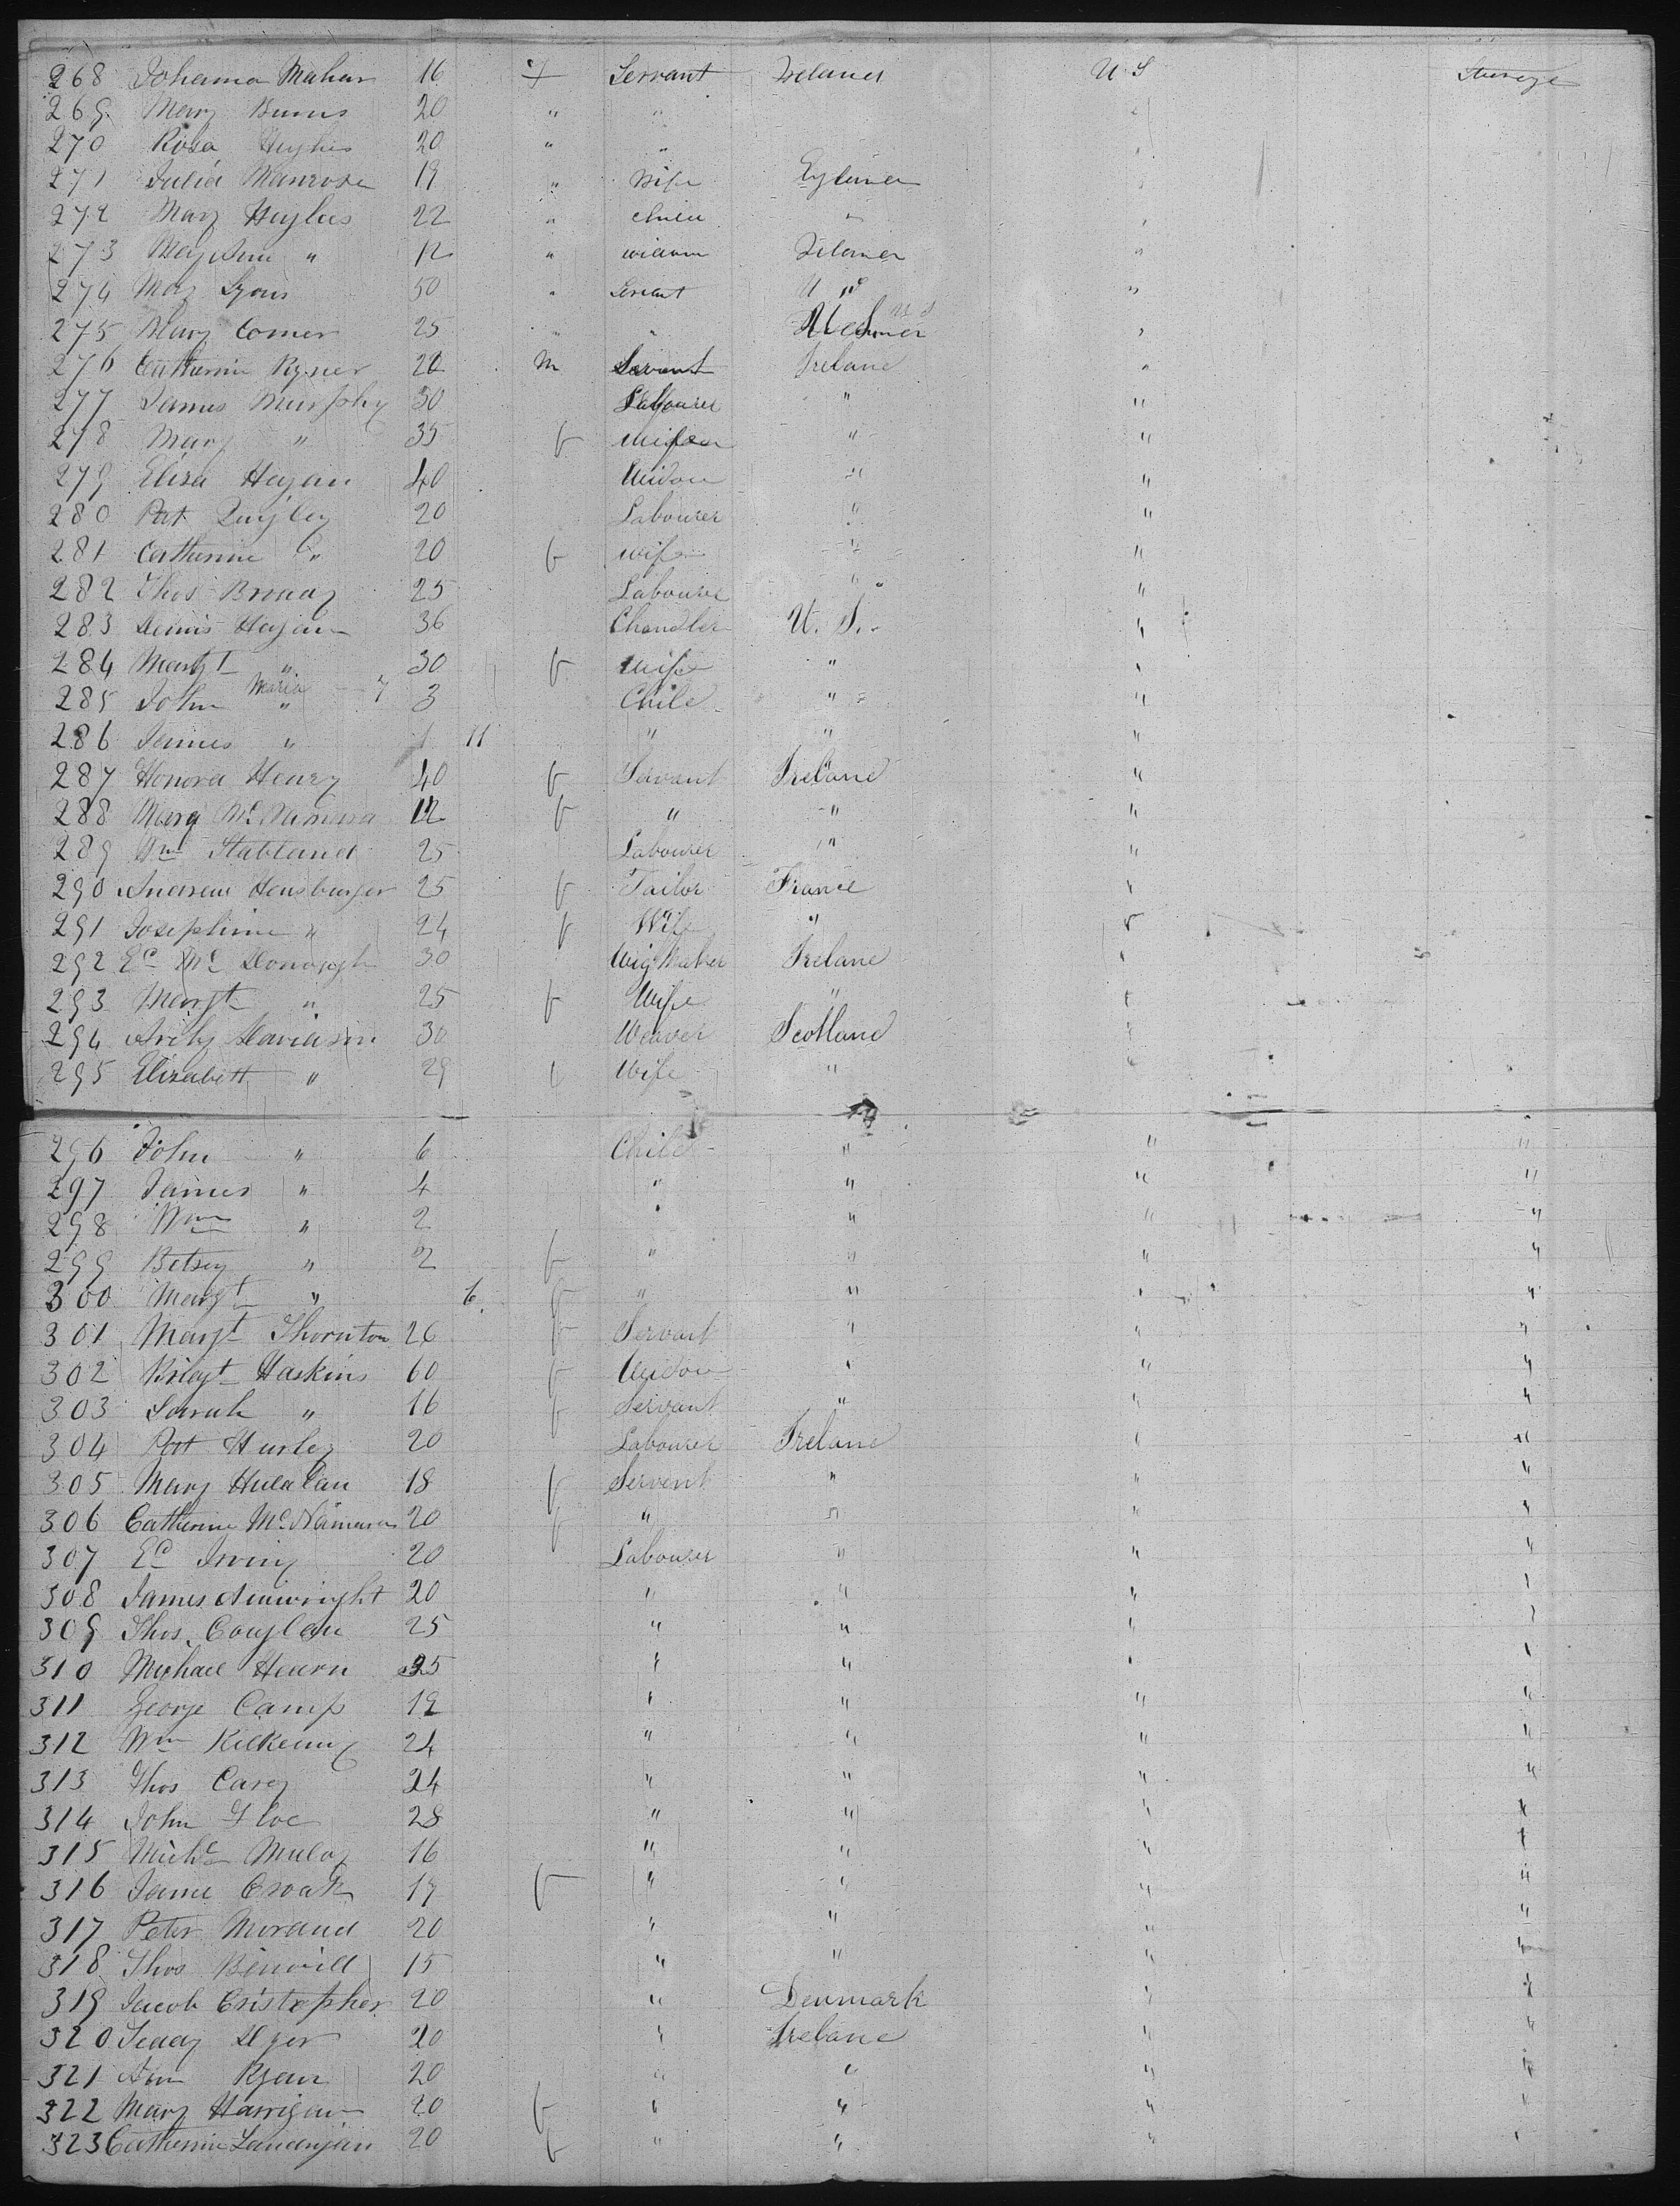 268 Johanna Mahar 16 f Servant Ireland U.S Steerage
269 Mary Burns 20 " "
270 Rosa Hughes 20 " "
271 Julia Manrose 19 " Wife England
272 Mary Hughes 22 " Child "
273 Mary Ann " 12 " widow Ireland "
274 Mary Lyons 50 " Servant U S "
275 Mary Comer 25 " " "
276 Catherine Ryner m Servant Ireland "
277 James Murphy 30 Labourer " "
278 Mary " 35 f wife " "
279 Eliza Hagan 40 Widow " "
280 Pat Quigley 20 Labourer " "
281 Catherine " 20 f wife " "
282 Thos 25 Labourer " "
283 Dennis Hagan 36 Chandler U. S. "
284 Margt " 30 f Wife " "
Maria 7
285 John " 3 Child " "
286 James " 11 " " "
287 Honora Henry 40 f Servant Ireland "
288 Mary McNamara 12 f " " "
289 Wm Stabland 25 Labourer " "
290 Andrew Hensburger 25 f Tailor France "
291 Josephine " 24 f Wife "
292 Ed McDonough 30 Wig Maker Ireland "
293 Margt " 25 f Wife " "
294 Davidson 30 Weaver Scotland "
295 Elizabeth " 29 f Wife " "
296 John " 6 Child " " "
297 James " 4 " " " "
298 Wm " 2 " " " "
299 Betsey " 2 f " " " "
300 Margt " 6 f " " " "
301 Margt Thornton 26 f Servant " " "
302 Bridgt Haskins 60 f Widow " " "
303 Sarah " 16 f Servant " " "
304 Pat Hurley 20 Labourer Ireland " "
305 Mary 18 f Servent " " "
306 Catherine McNamara 20 f " " " "
307 Ed Irving 20 Labourer " " "
308 James Ainwright 20 " " " "
309 Thos. Coughlan 25 " " " "
310 Michael Hearn 35 " " " "
311 George Camp 19 " " " "
312 Wm Kilkenny 24 " " " "
313 Thos Carey 24 " " " "
314 John 28 " " " "
315 Michl 16 " " " "
316 Jane Croak 17 f " " " "
317 Peter Morand 20 " " " "
318 Thos 15 " " " "
319 Jacob Cristopher 20 " Denmark " "
320 Dyer 20 " Ireland " "
321 Ann Ryan 20 " " " "
322 Mary Harrigan 20 f " " " "
323 Catherine 20 f " " " "